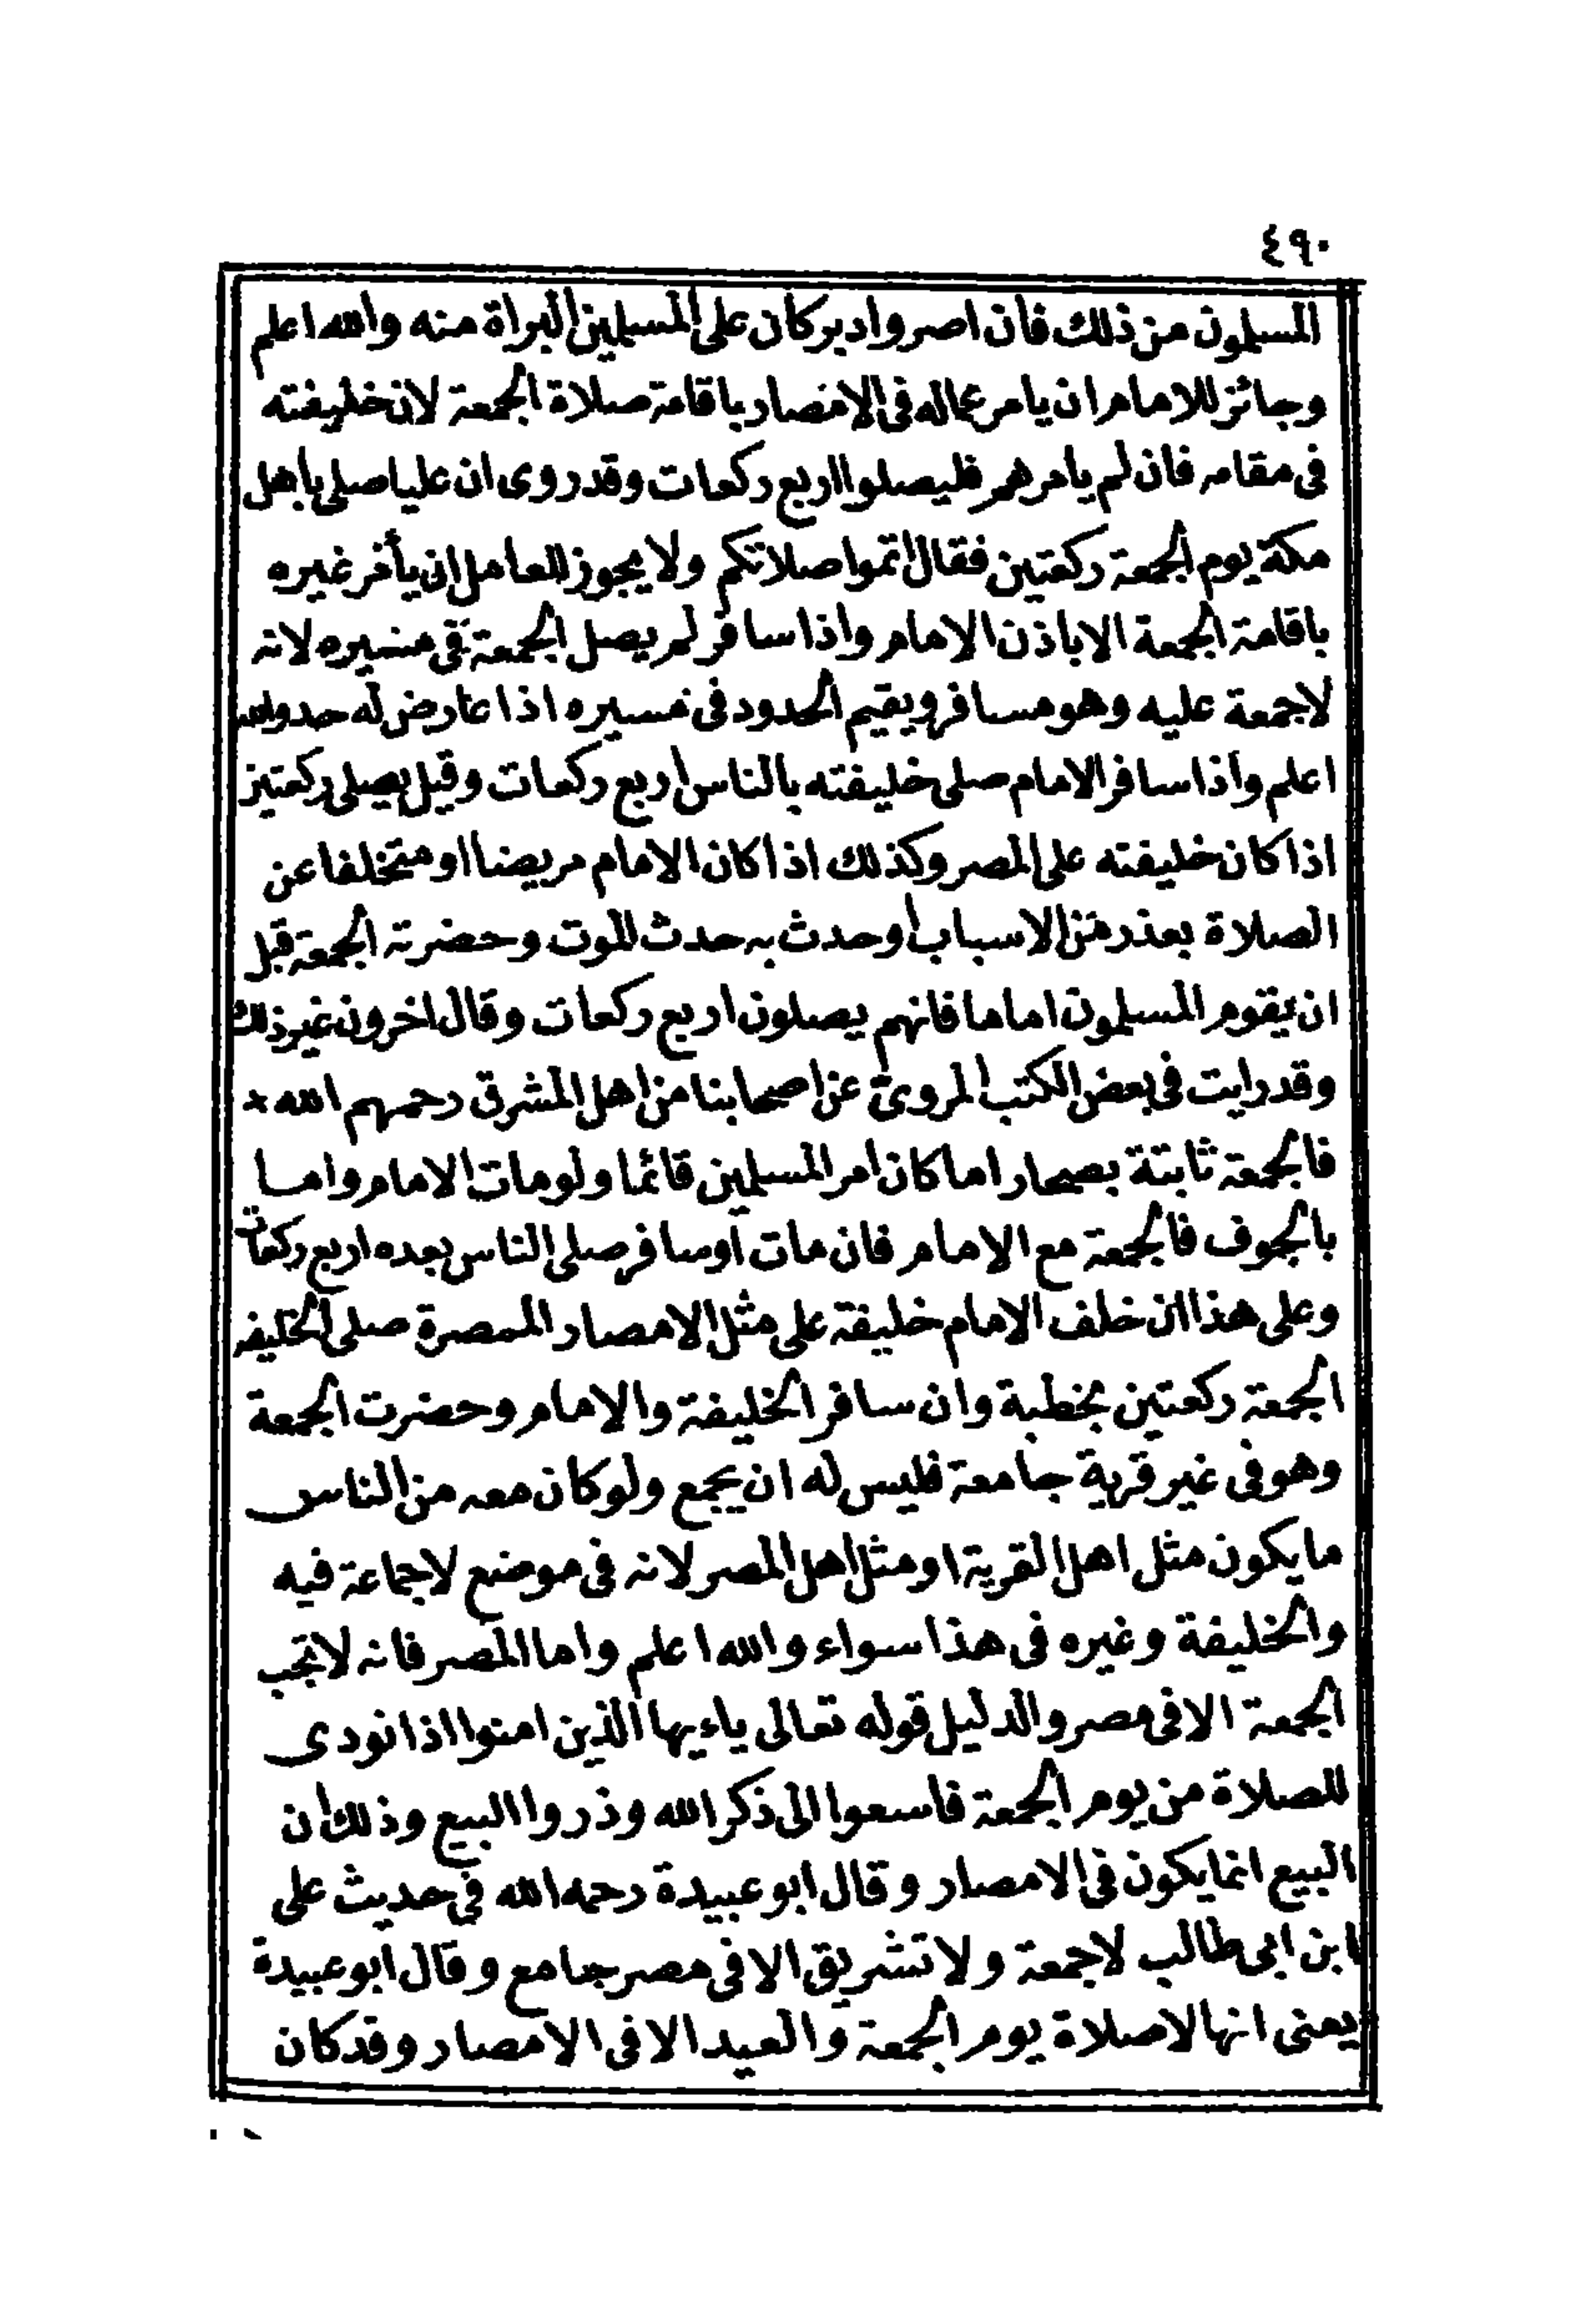 ٤٩٠
المسلمون من ذلك فان اصر وادبر كان على المسلمين البراة منه والله اعلم
وجائز للامام ان يامر عماله فى الامصار باقامة صلاة الجمعة لان خليفته
فى مقامه فان لم يامرهم فليصلوا اربع ركعات وقد روى ان عليا صلى باهل
مكة يوم الجمعة ركعتين فقال اتموا صلاتكم ولا يجوز للعامل ان يأمر غيره
باقامة الجمعة الا باذن الامام واذا سافر لم يصل الجمعة فى مسيره لانه
لا جمعة عليه وهو مسافر ويقيم الحدود فى مسيره اذا عارض له حد والله
اعلم واذا سافر الامام صلى خليفته بالناس اربع ركعات وقيل يصلى ركعتين
اذا كان خليفته على المصر وكذلك اذا كان الامام مريضا او متخلفا عن
الصلاة بعذر من الاسباب او حدث به حدث الموت وحضرته الجمعة قبل
ان يقوم المسلمون اماما فانهم يصلون اربع ركعات وقال اخرون غير ذلك
وقد رايت فى بعض الكتب المروى عن اصحابنا من اهل المشرق رحمهم الله ×
فالجمعة ثابتة بصحار اما كان امر المسلمين قائما ولو مات الامام واما
بالجوف فالجمعة مع الامام فان مات او سافر صلى الناس بعده اربع ركعات
وعلى هذا ان خلف الامام خليفة على مثل الامصار الممصرة صلى الخليفه
الجمعة ركعتين بخطبة وان سافر الخليفة والامام وحضرت الجمعة
وهو فى غير قرية جامعة فليس له ان يجمع ولو كان معه من الناس
ما يكون مثل اهل القرية او مثل اهل المصر لانه فى موضع لا جماعة فيه
والخليفة وغيره فى هذا سواء والله اعلم واما المصر فانه لا تجب
الجمعة الا فى مصر والدليل قوله تعالى ياءيها الذين امنوا اذا نودى
للصلاة من يوم الجمعة فاسعوا الى ذكر الله وذروا البيع وذلك ان
البيع انما يكون فى الامصار وقال ابو عبيدة رحمه الله فى حديث على
ابن ابى طالب لا جمعة ولا تشريق الا فى مصر جامع وقال ابو عبيدة
يعنى انها لا صلاة يوم الجمعة والعيد الا فى الامصار وقد كان